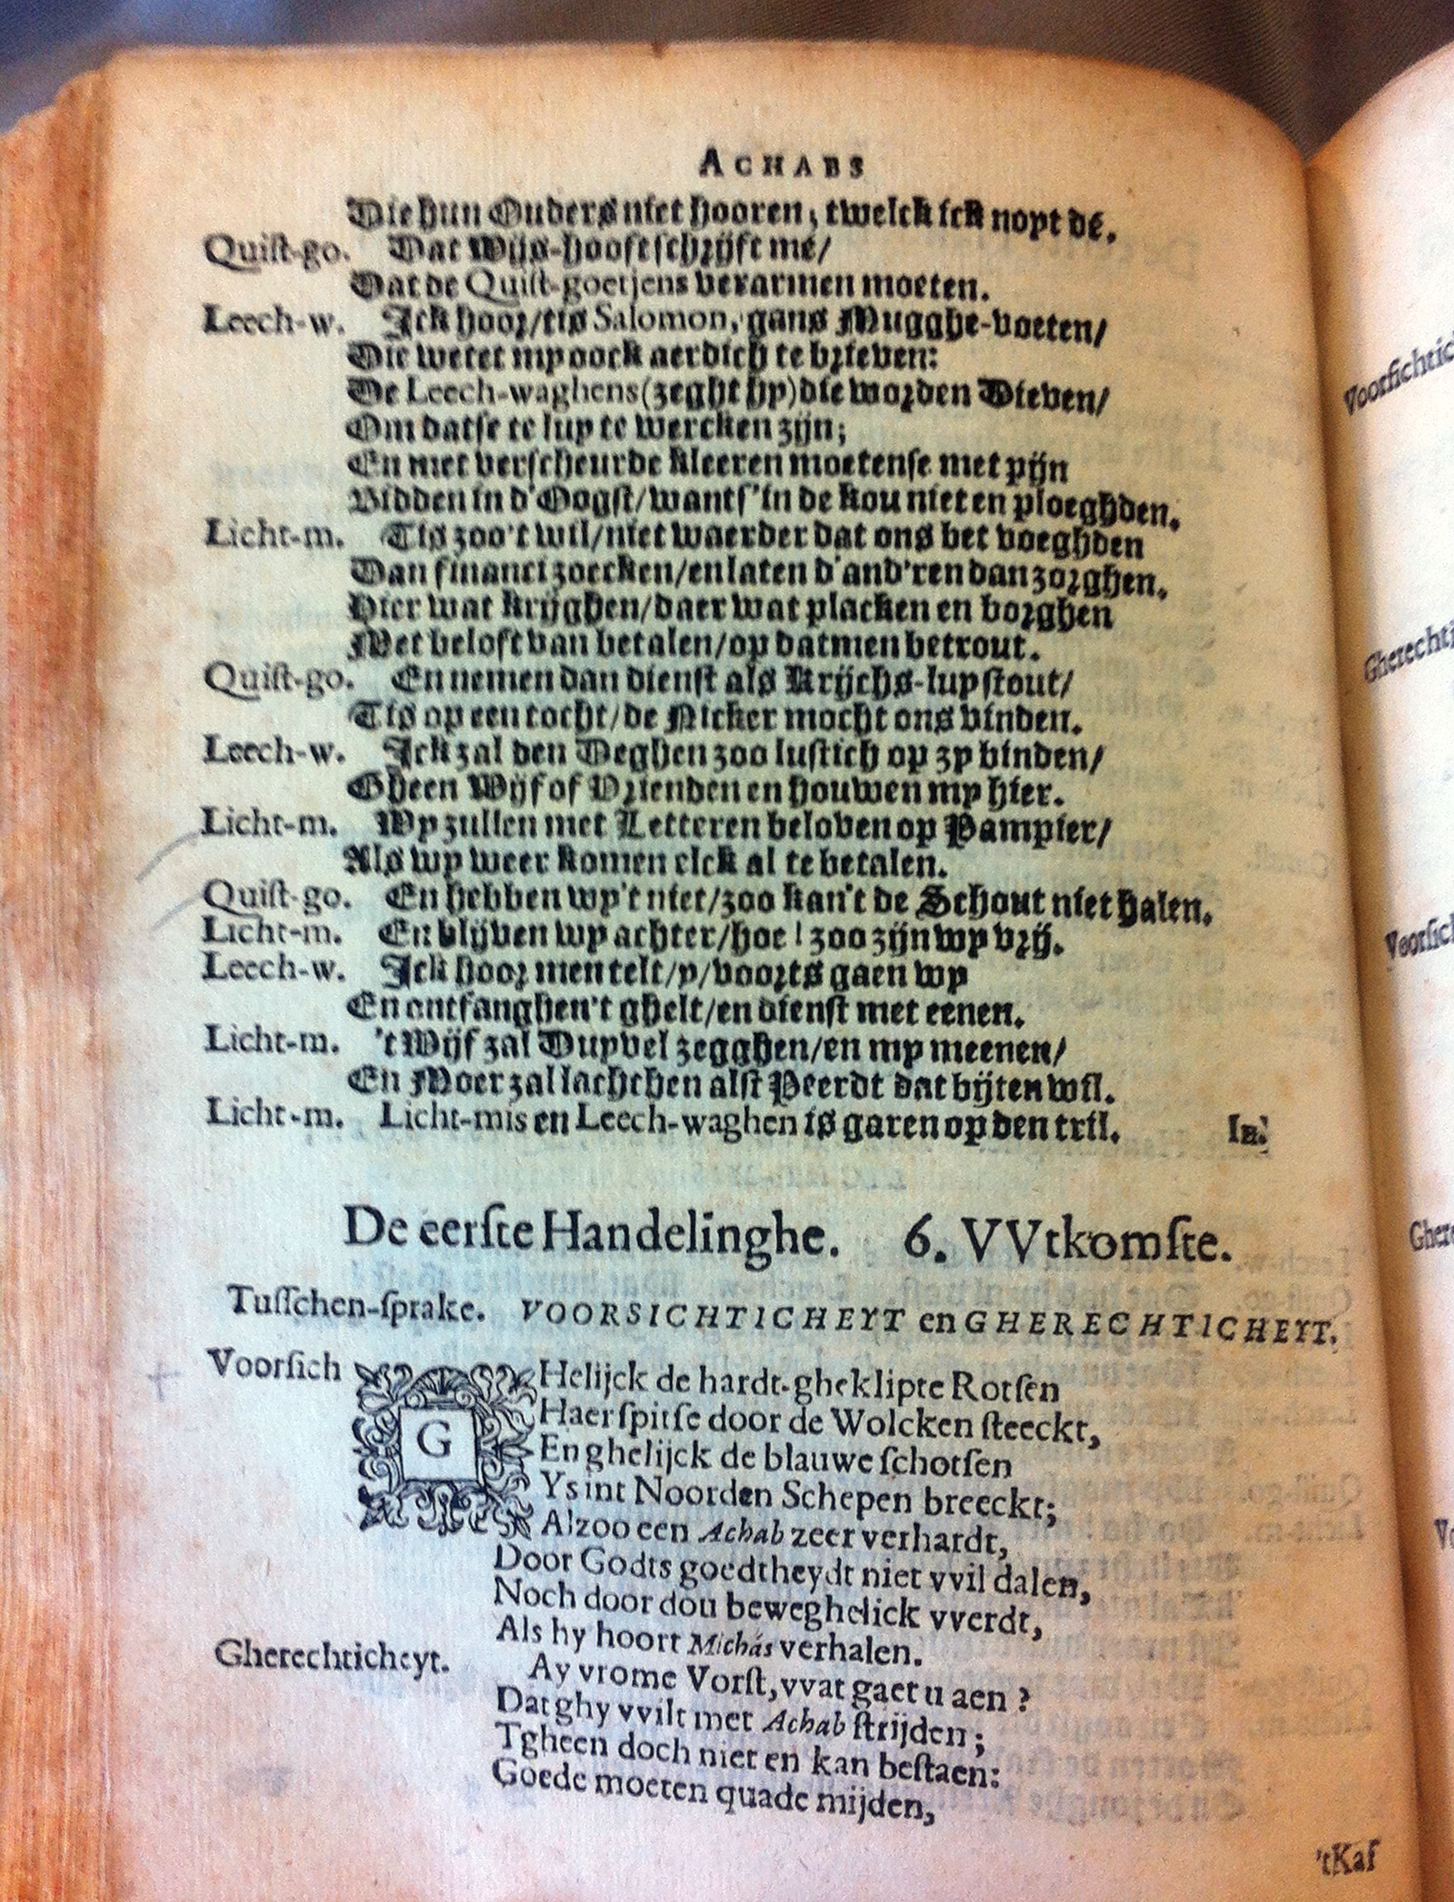 ACHABS
Die hun Ouders niet hooren, twelck ick nopt dé.
Quiſt-go. Dat Wijs-hooft ſchrijft mé/
Dat de Quiſt-goetjens verarmen moeten.
Leech-w. Ick hoor/tis Salomon, gans Mugghe-voeten/
Die wetet mp oock aerdich te brieven:
De Leech-waghens (zeght hp) die worden Dieven/
Om datſe te lup te wercken zijn;
En met verſcheurde kleeren moetenſe met pijn
Bidden in d'Oogſt/want ſ'in de kou niet en ploeghden.
Licht-m. Tis zoo't wil/niet waerder dat ons bet voeghden
Dan financi zoecken/en laten d'and'ren dan zorghen.
Hier wat krijghen/daer wat placken en borghen
Met beloft van betalen/op datmen betrout.
Quiſt-go. En nemen dan dienſt als Krijchs-lup ſtout/
Tis op een tocht/de Nicker mocht ons binden.
Leech-w. Ick zal den Deghen zoo luſtich op zp binden/
Gheen Wijf of Vrienden en houwen mp hier.
Licht-m. Wp zullen met Letteren beloven op Pampier/
Als wp weer komen elck al te betalen.
Quiſt-go. En hebben wp't niet/zoo kan't de Schout niet halen.
Licht-m. En blijven wp achter/hoe! zoo zijn wp vrij.
Leech-w. Ick hoor men telt/p/voorts gaen wp
En ontfanghen't ghelt/en dienſt met eenen.
Licht-m. 't Wijf zal Dupvel zegghen/en mp meenen/
En Moer zal lachchen alſt Peerdt dat bijten wil.
Licht-m. Licht-mis en Leech-waghen is garen op den tril. In.
De eerſte Handelinghe. 6. VVtkomſte.
Tuſſchen-ſprake. VOORSICHTICHEYT en GHERECHTICHEYT.
Voorſich GHelijck de hardt-gheklipte Rotſen
Haer ſpitſe door de Wolcken ſteeckt,
En ghelijck de blauwe ſchotſen
Ys int Noorden Schepen breeckt;
Alzoo een Achab zeer verhardt,
Door Godts goedtheydt niet vvil dalen,
Noch door dou beweghelick vverdt,
Als hy hoort Michás verhalen.
Gherechticheyt. Ay vrome Vorſt, vvat gaet u aen?
Dat ghy vvilt met Achab ſtrijden;
Tgheen doch niet en kan beſtaen:
Goede moeten quade mijden,
'tKaf